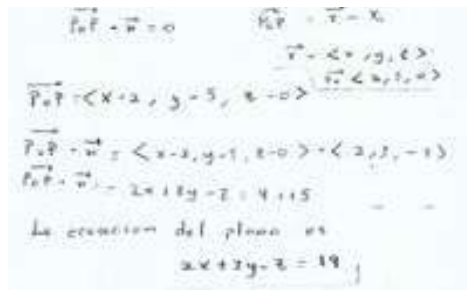 P₀P · n = 0    P₀P = r - r₀
r = <x, y, z>
r₀ <2, 5, 0>
P₀P = <x-2, y-5, z-0>
P₀P · n = <x-2, y-5, z-0> · <2, 3, -1>
P₀P · n = 2x+3y-z = 4+15
La ecuacion del plano es
2x+3y-z = 19